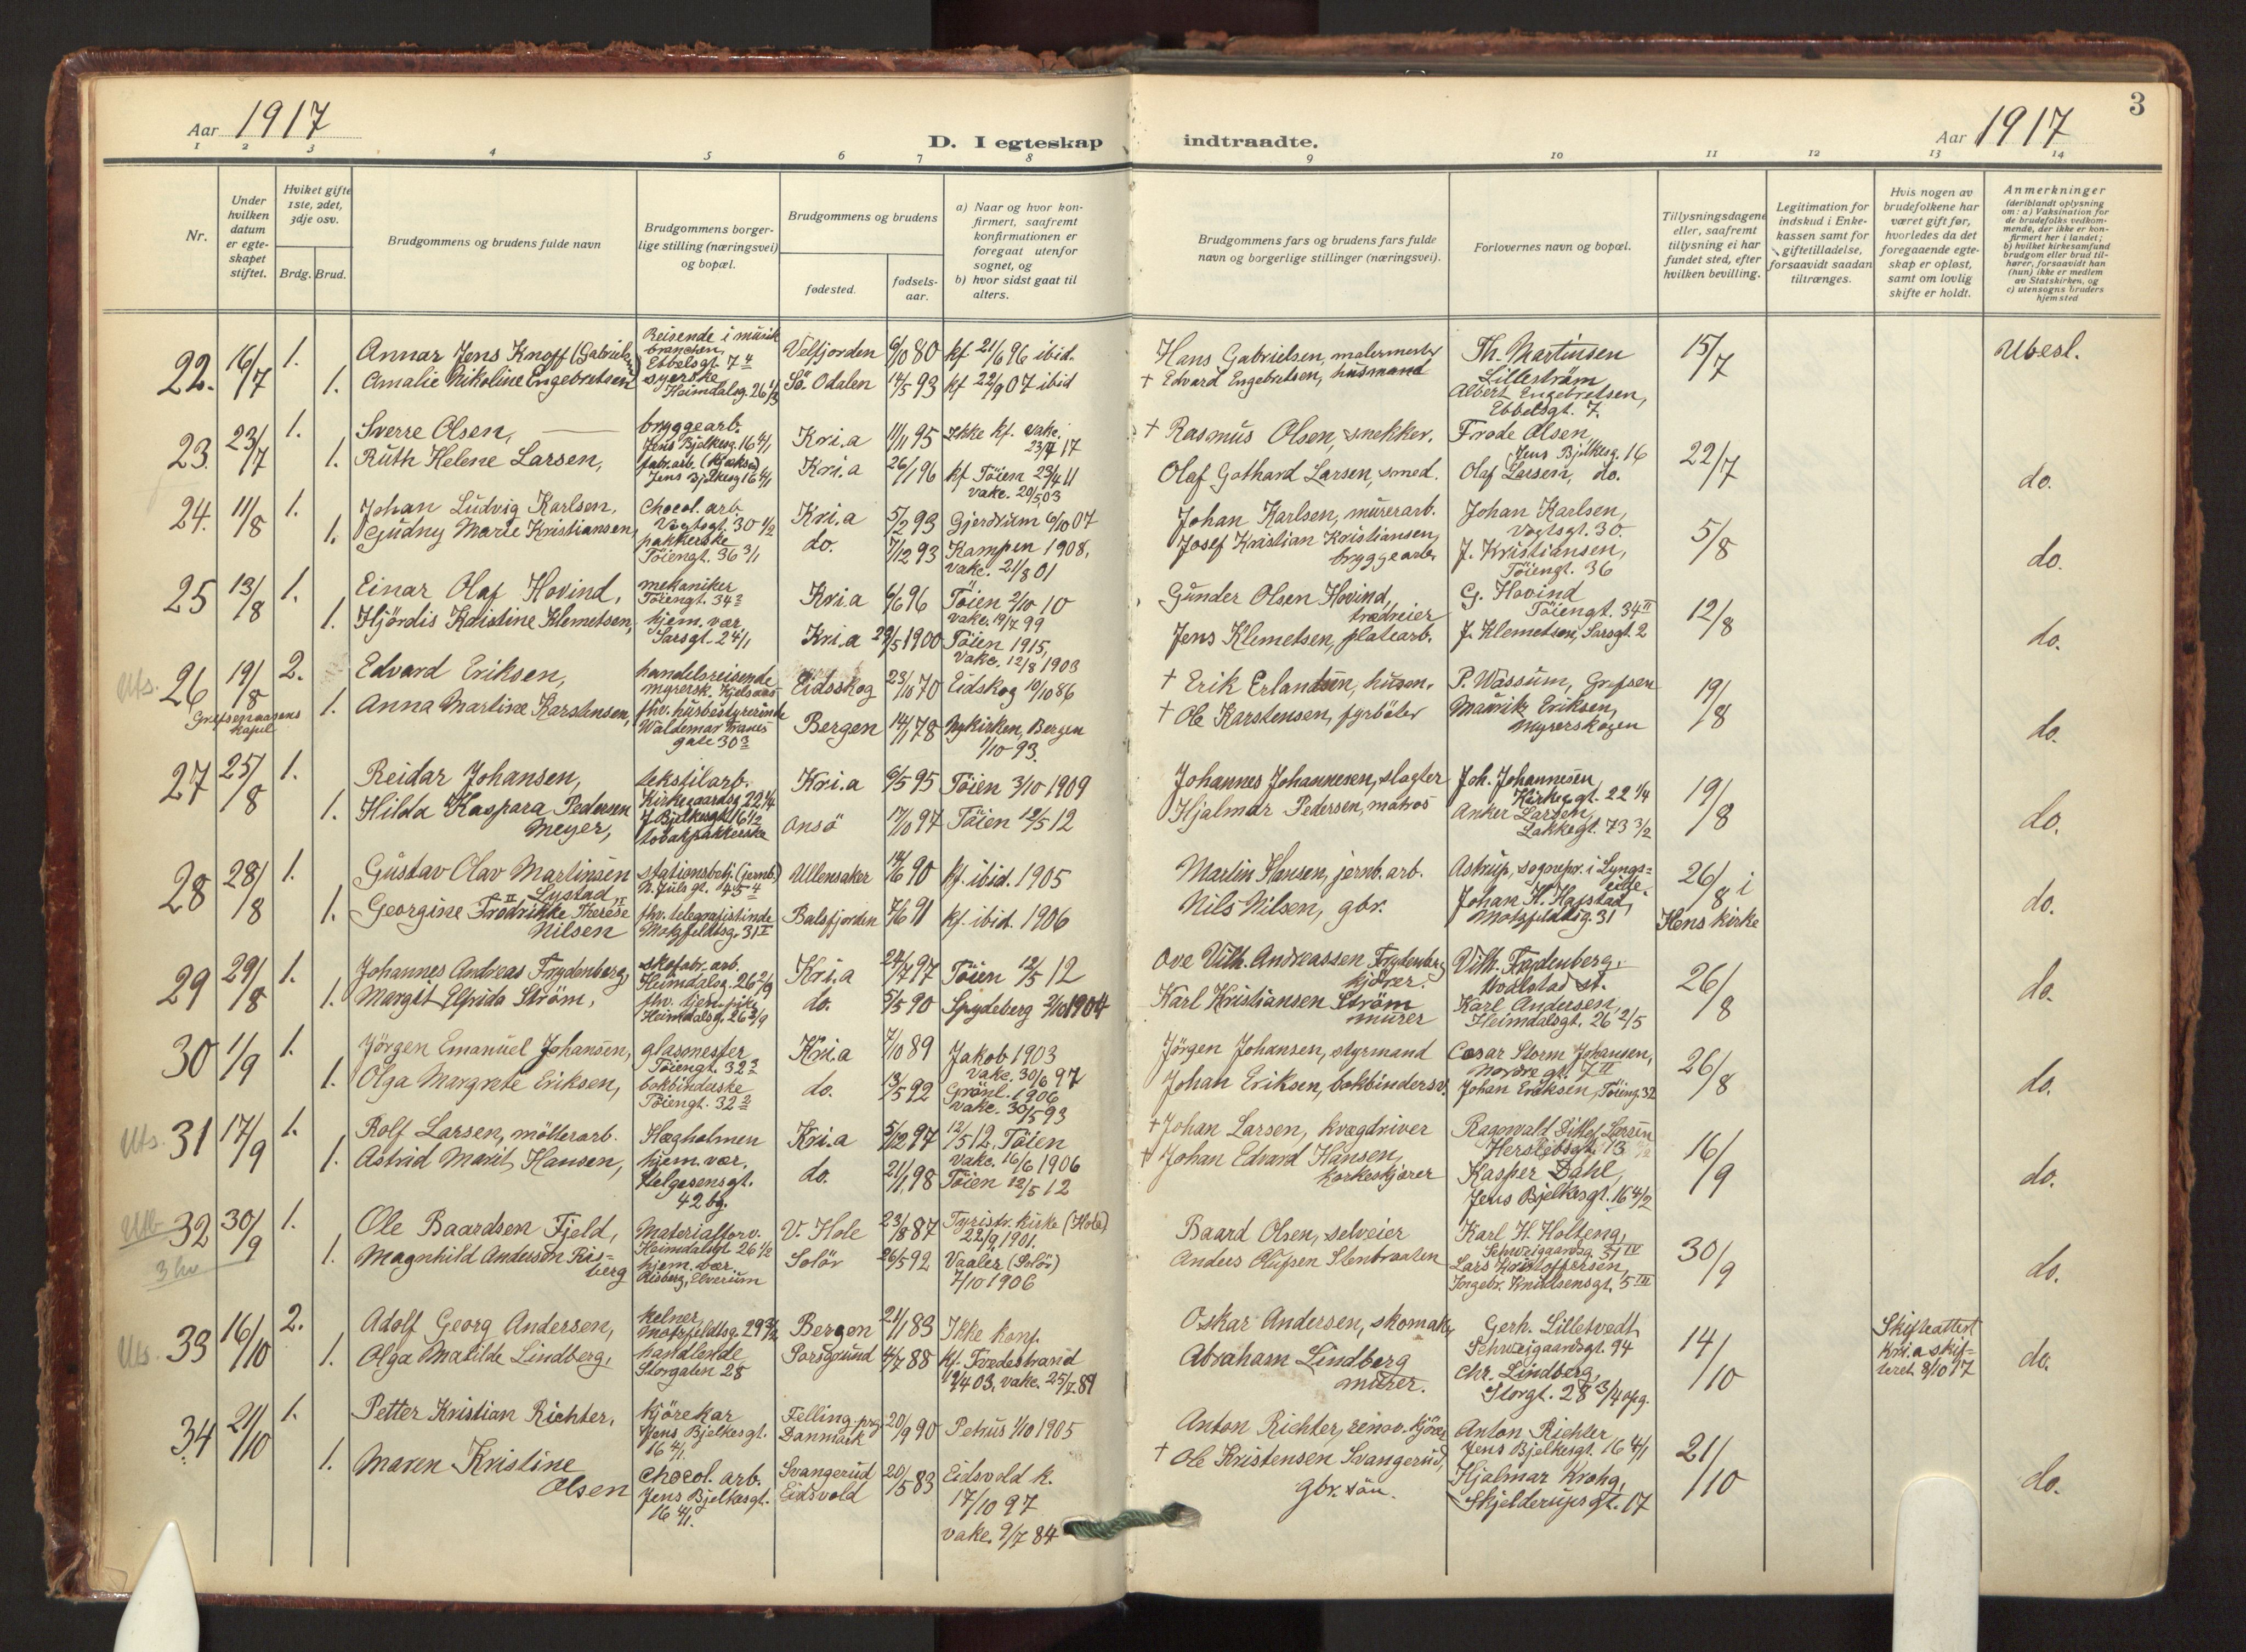 Aar 1917
D. I egteskap indtraadte.
Aar 1917
3
1 2 3 4 5 6 7 8 9 10 11 12 13 14
Nr.
Under hvilken datum er egteskapet stiftet.
Hviket gifte 1ste, 2det, 3dje osv.
Brdg. Brud.
Brudgommens og brudens fulde navn
Brudgommens borgerlige stilling (næringsvei) og bopæl.
Brudgommens og brudens
fødested.
fødselsaar.
a) Naar og hvor konfirmert, saafremt konfirmationen er foregaat utenfor sognet, og
b) hvor sidst gaat til alters.
Brudgommens fars og brudens fars fulde navn og borgerlige stillinger (næringsvei).
Forlovernes navn og bopæl.
Tillysningsdagene eller, saafremt tillysning ei har fundet sted, efter hvilken bevilling.
Legitimation for indskud i Enkekassen samt for giftetilladelse, forsaavidt saadan tiltrænges.
Hvis nogen av brudefolkene har været gift før, hvorledes da det foregaaende egteskap er opløst, samt om lovlig skifte er holdt.
Anmerkninger (deriblandt oplysning om: a) Vaksination for de brudefolks vedkommende, der ikke er konfirmert her i landet; b) hvilket kirkesamfund brudgom eller brud tilhører, forsaavidt han (hun) ikke er medlem av Statskirken, og c) utensogns bruders hjemsted
22. 16/7 1. Annar Jens Knoff (Gabrielsen) Reisende i musikbranchen, Ebbelsgt. 7 Velfjorden 6/10 80 kf. 21/6 96 ibid. Hans Gabrielsen, malermester Th. Martinsen Lilleström 15/7 Ubesl.
1. Amalie Nikoline Engebretsen syerske Heimdalsg. 26 Sö. Odalen 14/5 93 kf 22/9 07 ibid † Edvard Engebretsen, husmand Albert Engebretsen, Ebbelsgt. 7.
23. 23/7 1. Sverre Olsen, bryggearb. Jens Bjelkesg. 16 4/1 Kri.a 11/11 95 Ikke kf. vakc. 23/4 17 † Rasmus Olsen, snekker. Frode Olsen, Jens Bjelkesg. 16 22/7 do.
1. Ruth Helene Larsen, fabr.arb. Jens Bjelkesg 16 4/1 Kri.a 26/1 96 kf Töien 23/4 11 vakc. 20/5 03 Olaf Gothard Larsen, smed. Olaf Larsen, do.
24. 11/8 1. Johan Ludvig Karlsen. Chocol. arb Vogtsgt. 30 1/2 Kri.a 5/2 93 Gjerdrum 6/10 07 Johan Karlsen, murerarb. Johan Karlsen, Vogtsgt. 30. 5/8 do.
1. Gudny Marie Kristiansen, pakkerske Töiengt. 36 3/1 do. 7/12 93 Kampen 1908, vakc. 21/8 01 Josef Kristian Kristiansen, bryggearb. J. Kristiansen, Töiengt. 36
25 13/8 1. Einar Olaf Hovind, mekaniker Töiengt. 34 Kri.a 6/6 96 Töien 2/10 10 vakc. 19/7 99 Gunder Olsen Hovind, G. Hovind Töiengt. 34 II 12/8 do.
1. Hjördis Kristine Klemetsen, hjem. vær. Sarsgt. 2 4/1 Kri.a 29/5 1900 Töien 1915, vakc. 12/8 1903 Jens Klemetsen, platearb. J. Klemetsen, Sarsgt. 2
Uts. 26 19/8 2. Edvard Eriksen, handelsreisende myrersk. Kjelsaas Eidsskog 23/10 70 Eidskog 10/10 86 † Erik Erlandsen, husm. P. Wassum, Grefsen 19/8 do.
Grefsenaasens kapel 1. Anna Martine Karstensen, fhv. husbestyrerinde Waldemar Tranes gate 30 Bergen 14/1 78 Nykirken, Bergen 1/10 93. † Ole Karstensen, fyrböter Maurik Eriksen, myrerskogen
27 25/8 1. Reidar Johansen, tekstilarb. Kirkegaardsg 22 1/4 Kri.a 6/5 95 Töien 3/10 1909 Johannes Johannesen, slagter Joh. Johannesen, Kirkeg.gt. 22 1/4 19/8 do.
1. Hilda Kaspara Pedersen Meyer, J. Bjelkesgt. 16 1/2 tobakpakkerske Onsö 17/10 97 Töien 12/5 12 Hjalmar Pedersen, matros Anker Larsen, Lakkegt. 73 3/2
28 28/8 1. Gustav Olav Martinsen Lystad, stationsbetj. (jernb.) N. Juls gt. 45 4 Ullensaker 90 kf. ibid. 1905 Martin Hansen, jernb. arb. Astrup, sognepr. i Lyngseidet 26/8 i Hens kirke do.
1. Georgine Fredrikke Therese Nilsen fhv. telegrafistinde Motzfeldtsg. 31 I Balsfjorden 7/6 91 kf. ibid. 1906 Nils Nilsen, gbr. Johan H. Hafstad, Motzfeldtsg. 31
29 29/8 1. Johannes Andreas Frydenberg, skofabr. arb. Heimdalsg. 26 2/9 Kri.a 24/7 97 Töien 12/5 12 Ove Vilh. Andreassen Frydenberg kjörer. Vilh. Frydenberg, st. 26/8 do.
1. Margit Elfrida Ström, fhv. tjen.pike Heimdalsg. 26 3/9 do. 5/5 90 Spydeberg 2/10 1904 Karl Kristiansen Ström murer Karl Andersen, Heimdalsgt. 26 2/5
30 1/9 1. Jörgen Emanuel Johansen, glasmester Töiengt. 32 Kri.a 7/10 89 Jakob 1903 vakc. 30/6 97 Jörgen Johansen, styrmand Cæsar Storm Johansen, Nordre gt. 7 II 26/8 do.
1. Olga Margrete Eriksen, bokbinderske Töiengt. 32 do. 13/5 92 Grönl. 1906 vakc. 30/5 93 Johan Eriksen, bokbindersv. Johan Eriksen, Töieng. 32
Uts. 31 17/9 1. Rolf Larsen, möllerarb. Hægholmen Kri.a 5/12 97 12/5 12. Töien vakc. 16/6 1906 † Johan Larsen, kvægdriver Ragnvald Ditlef Larsen Herslebsgt. 13 16/9 do.
1. Astrid Marit Hansen, hjem. vær, Helgesensgt. 42 bg. do. 21/1 98 Töien 12/5 12 † Johan Edvard Hansen, korkeskjærer Kasper Dahl, Jens Bjelkesgt. 16 4/2
Utb 32 30/9 1. Ole Baardsen Fjeld, Materialforv. Heimdalsgt 26 1/2 V. Hole 23/8 87 Tyristr. kirke (Hole) 22/9 1901. Baard Olsen, selveier Karl H. Holteng, Schweigaardsg. 31 IV 30/9 do.
3 hv 1. Magnhild Andersen Risberg hjem. vær. Risberg, Elverum Solör 26/5 92 Vaaler (Solör) 7/10 1906 Anders Olufsen Stenbraaten Lars Kristoffersen, Ingebr. Knudsensgt. 5 III
Uts. 33 16/10 2. Adolf Georg Andersen, kelner, Motzfeldtsg. 29 Bergen 21/1 83 Ikke konf. Oskar Andersen, skomaker Gerh. Lilletvedt, Schweigaardsgt. 94 14/10 Skifteattest Kri.a skifteret 8/10 17 do.
1. Olga Matilde Lindberg, handlende Storgaten 28 Porsgrund 4/7 88 kf. Tvedestrand 12/4 03, vakc. 25/7 89 Abraham Lindberg murer. Chr. Lindberg, Storgt. 28 3/4 opg.
34 21/10 1. Petter Kristian Richter, kjörekar Jens Bjelkesgt. 16 4/1 Felling prg Danmark 20/9 90 Petrus 1/10 1905 Anton Richter, renov. kjörer Anton Richter, Jens Bjelkesgt. 16 4/1 21/10 do.
1. Maren Kristine Olsen Chocol. arb. Jens Bjelkesgt. 16 4/1. Svangerud Eidsvold 20/5 83 Eidsvold k. 17/10 97 vakc. 9/7 84 † Ole Kristensen Svangerud, gbr. sön. Hjalmar Krohg, Skjelderups gt. 17